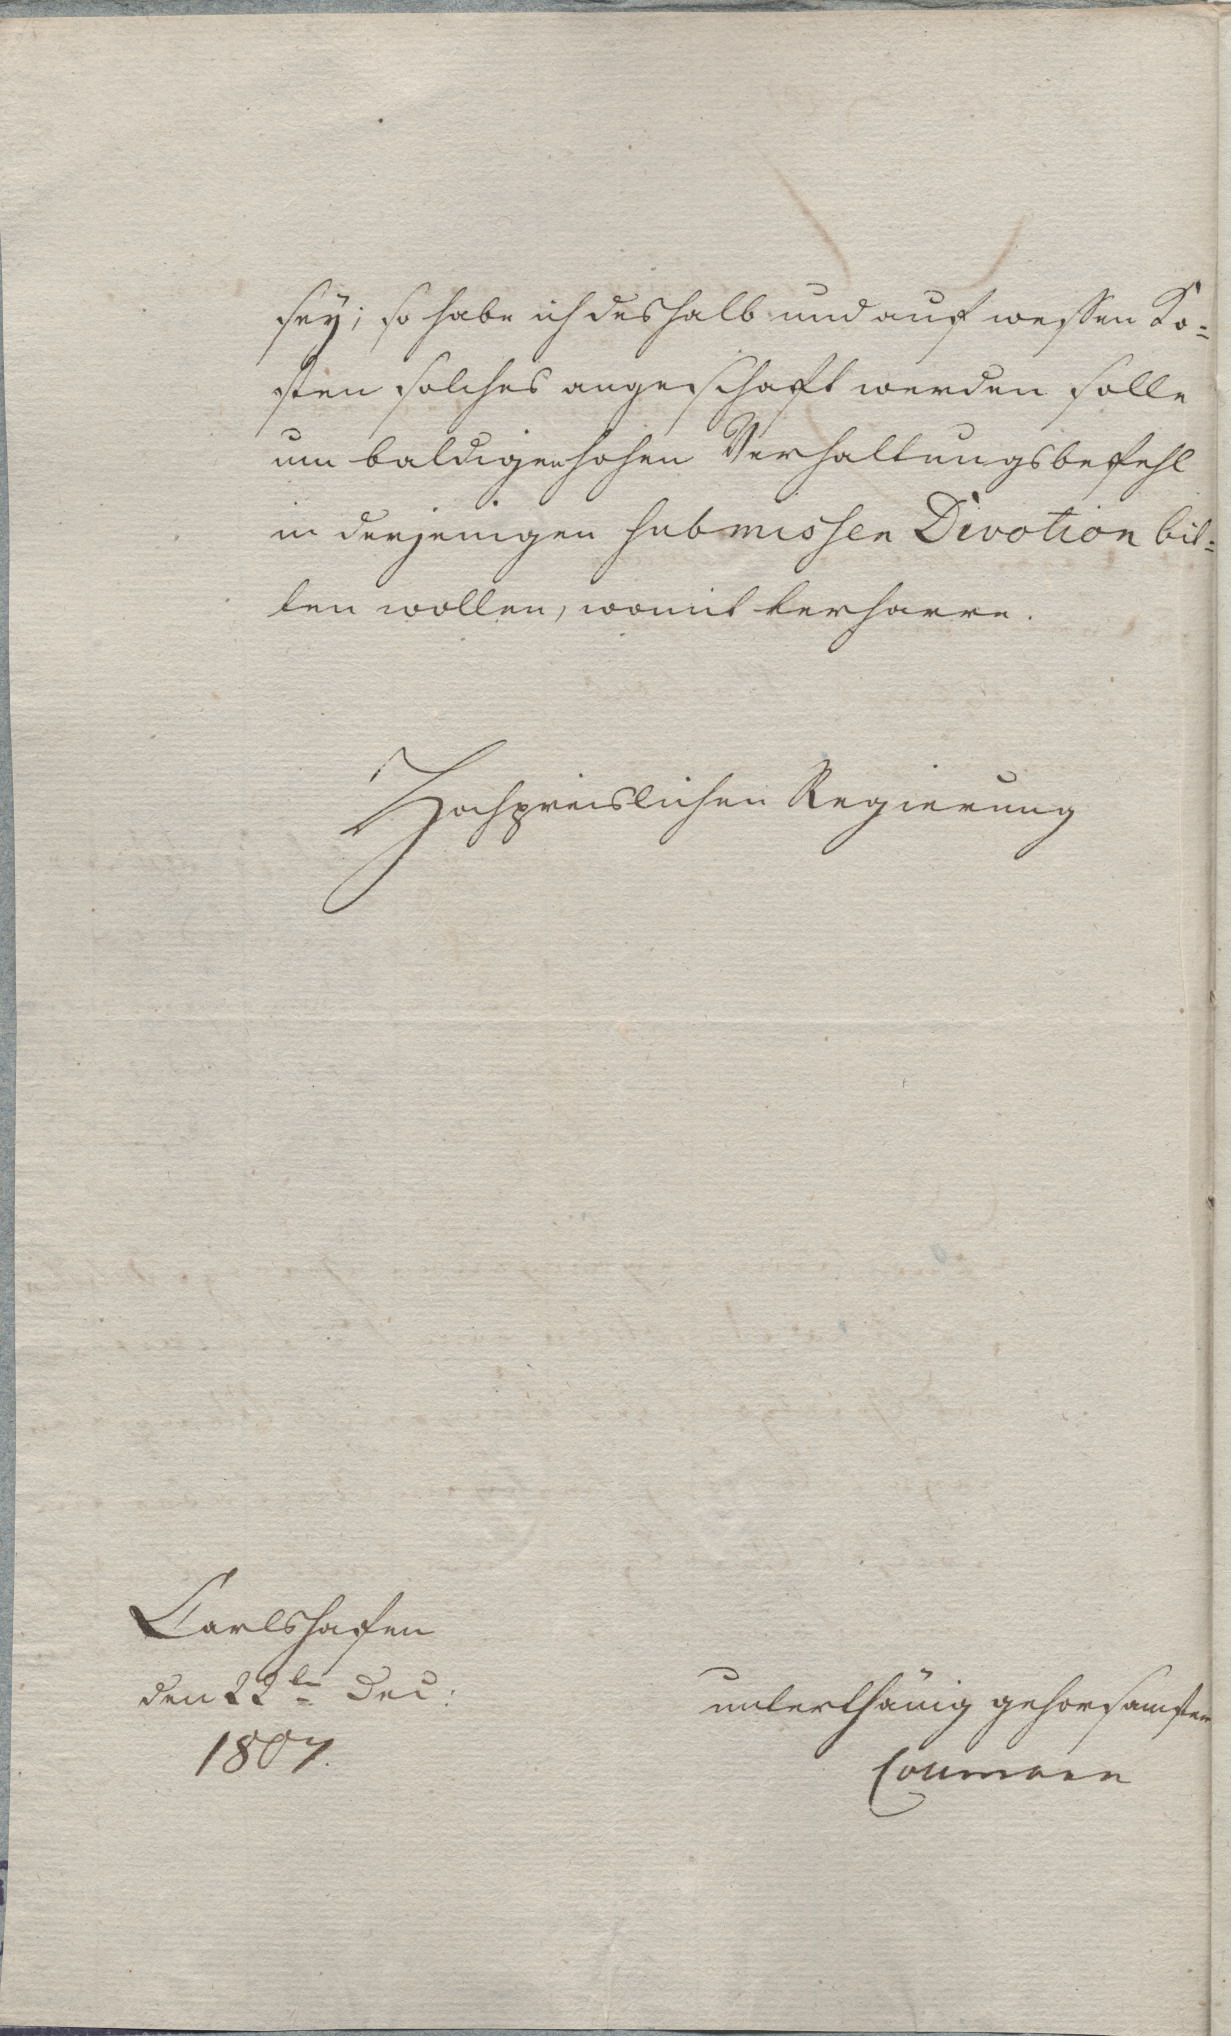 sey; so habe ich deshalb und auf wessen Ko=
sten solches angeschaft werden solle
um baldigen hohen Verhaltungsbefehl
in derjenigen submissen Devotion bit=
ten wollen, womit verharre.
Hochpreislichen Regierung
Carlshafen
den 22ten Dec:
1807.
unterthänig gehorsamster